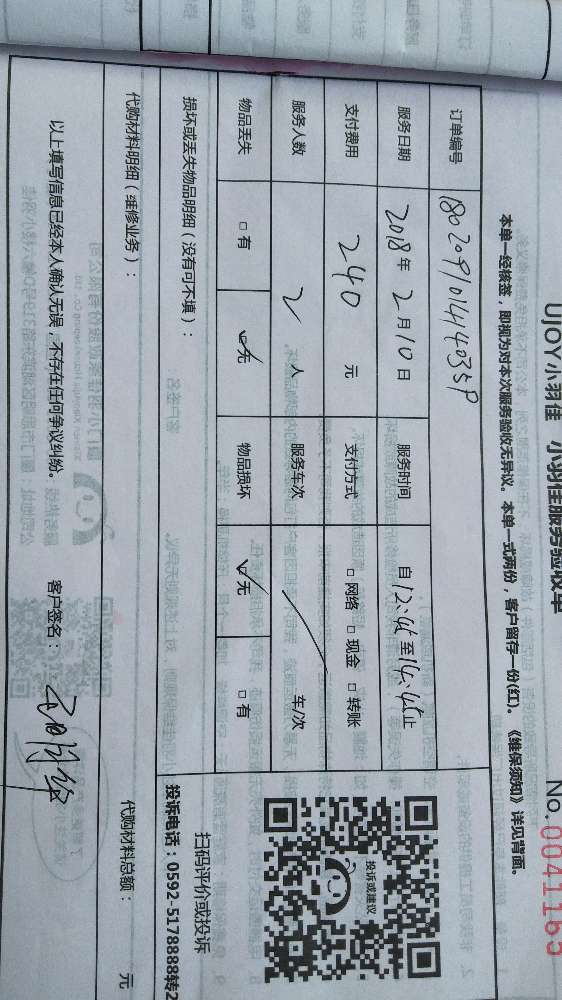 UJOY小羽佳 小羽佳服务验收单
No.0041165
本单一经核签，即视为对本次服务验收无异议。本单一式两份，客户留存一份(红)。《维保须知》详见背面。
订单编号 180209101414035P
服务日期 2018年2月10日 服务时间 自12:45至14:45止
支付费用 240 元 支付方式 □网络 □现金 □转账
服务人数 2 人 服务车次 车/次
物品丢失 □有 ☑无 物品损坏 ☑无 □有
投诉或建议
扫码评价或投诉
投诉电话：0592-5178888转2
损坏或丢失物品明细（没有可不填）：
代购材料明细（维修业务）： 代购材料总额： 元
以上填写信息已经本人确认无误，不存在任何争议纠纷。 客户签名：